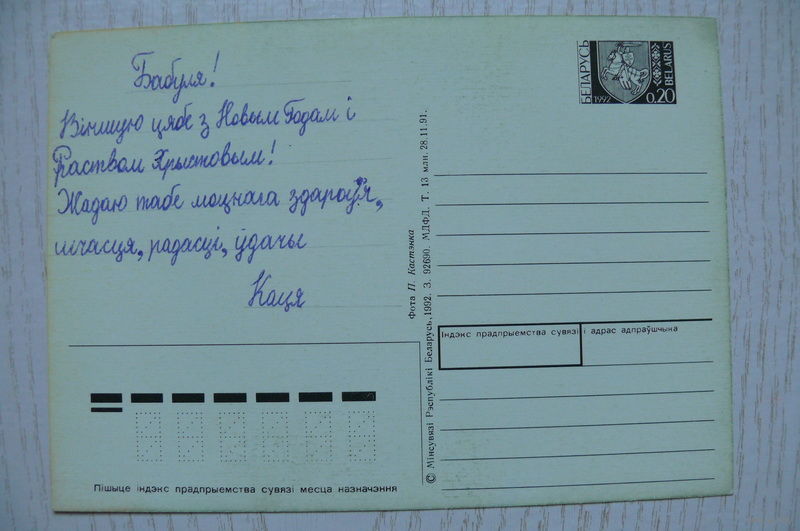 Бабуля!
Віншую цябе з Новым Годам і
Раством Хрыстовым!
Жадаю табе моцнага здароўя,
шчасця, радасці, ўдачы
Каця
БЕЛАРУСЬ
1992
0.20
BELARUS
Фота П. Кастэнка
© Мінсувязі Рэспублікі Беларусь, 1992. З. 92690. МДФД. Т. 13 млн. 28.11.91.
Індэкс прадпрыемства сувязі і адрас адпраўшчыка
Пішыце індэкс прадпрыемства сувязі месца назначэння